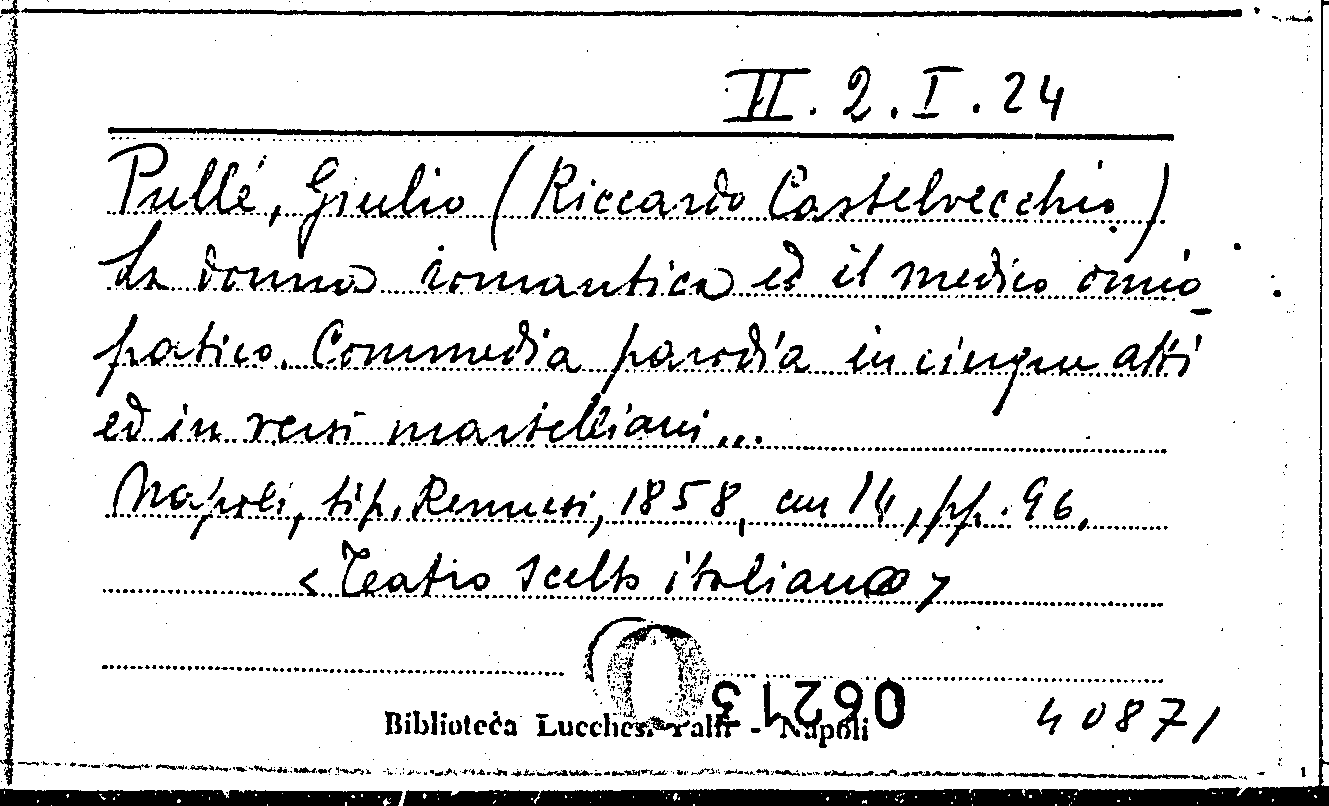 VI. 2. I. 24
Pullé, Giulio (Riccardo Castelvecchio)
La donna romantica ed il medico omio_
patico. Commedia parodia in cinque atti
ed in versi martelliani...
Napoli, tip. 1858, cm 14, pp. 96.
<Teatro scelto italiano>
06213
Biblioteca Lucchesi Palli - Napoli
40871